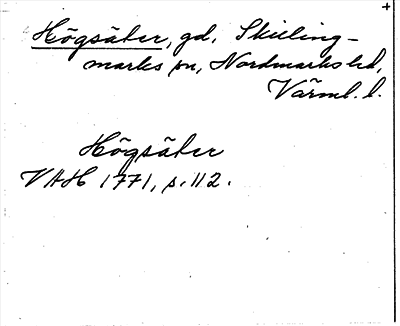 Högsäter, gd, Skilling-
marks sn, Nordmarks hd,
Värml. l.
Högsäter
VAH 1771, s. 112.